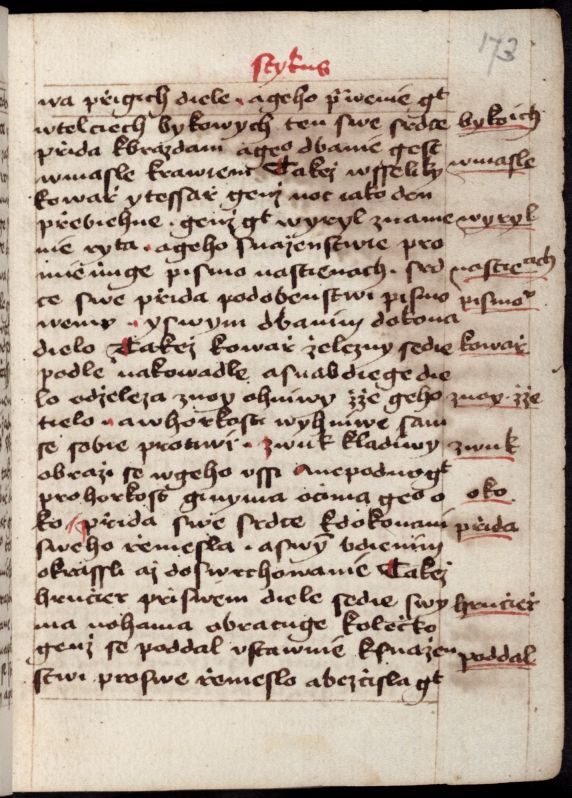 173
wa přigich diele · ageho p̄wenie gt
wtelciech bykowych ten swe srdce bykoich
přida kbrazdam ageo dbanie gest
wmasle krawiem Takez wsseliky wmasle
kowař ytessař genz noc iako den
přebiehne · genz gt wyryl zname wyryl
nie ryta · ageho snaženstwie pro
miēnuge pismo nastienach · srd nastieach
ce swe přida podobenstwi pismo pismo
wemu · yswym dbanim dokona
dielo Takez kowař železny sedie kowař
podle nakowadle asnabdiege die
lo odželeza znoy ohniwy žže geho znoy · žže
tielo · awhorkosti wyhniwe sam
se sobie protiwi · zwuk kladiwy zwuk
obrazi se wgeho ussi anepodnogt
prohorkost ginyma očima geo o oko
ko / přida swe srdce kdokonani přida
sweho řemesla · aswȳ bdienim
okrassli až doswrchowanie Takez
hrnčieř přiswem diele sedie swy hrnčieř
ma nohama obracuge kolečko
genz se poddal ustawnie ksnazen poddal
stwi proswe řemeslo abezčisla gt